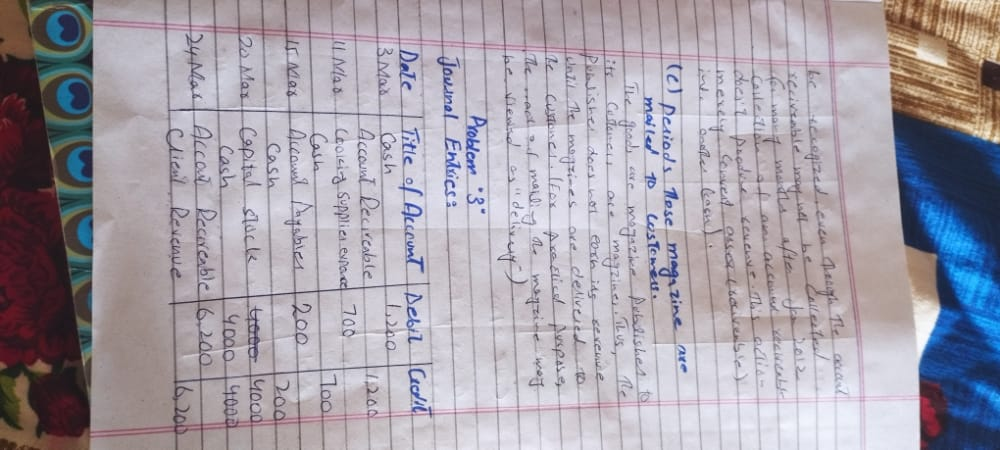 be recognized even though the account
receivable may not be collected
for many months after Job 2012
Collection of an account receivable
doesn't produce revenue. This action
merely convert asset (receivable)
into another (cash).
(c) Periods those magazine are
mailed to costomers.
The good are magazine published to
its costomers are magazines. Thus, the
Publisher does not earning revenue
until the magazines are delivered to
the customer. (For practical purpose,
the act of mailing the magazine may
be viewed as "delivery")
Problem "3"
Journal Entries:
Date Title of Account Debit Credit
3 Mar Cash 1,200
Account Recireable 1,200
11 Mar supplies expance 700
Cash 700
15 Mar Account Payables 200
Cash 200
20 Mar Capital stock 4000 4000
Cash 4000 4000
24 Mar Account Recireable 6,200
Client Revenue 6,200